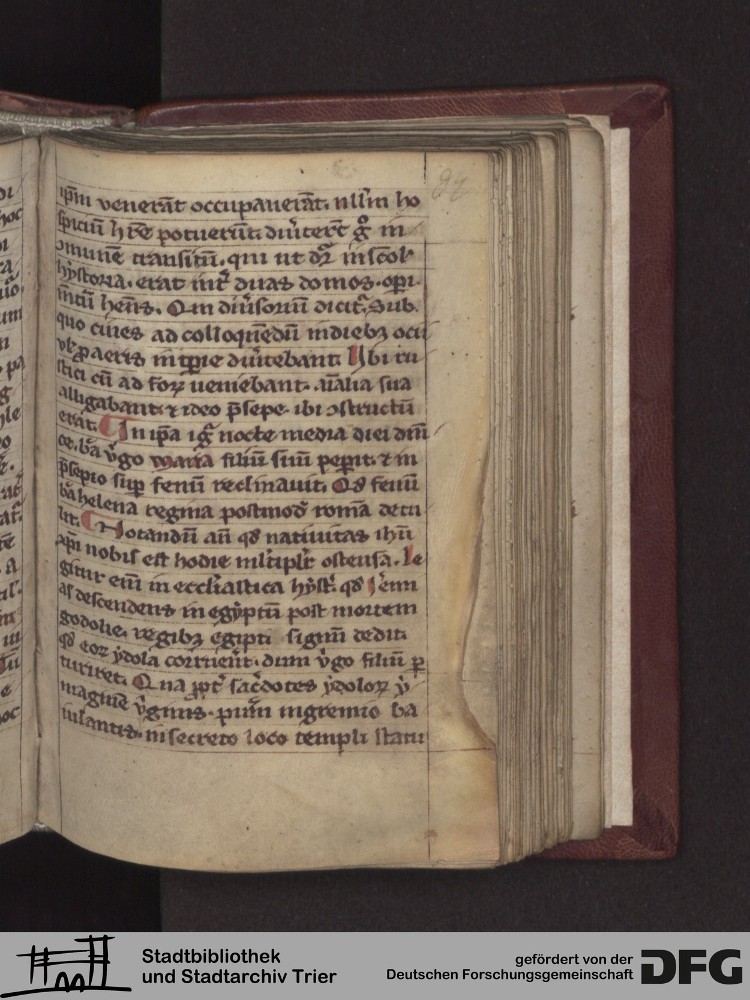 ip̄m venerāt occupauerāt. nllm̄ ho
spiciū hr̄e potuerūt. diuͥtert̄ gͦ in
ɔmunē transitū. qui ut dr̄ in scol
hystoria. erat int̄ duas domos. opi
mtū hen̄s. Qui diuͥsoriū dicit͛. Sub
quo ciues ad colloquēdū in diebꝫ ocii
vl̄ ꝓ aeris intꝑie diuͥtebant. Ubi ru
stici cū ad foꝝ ueniebant. aīalia sua
alligabant. ⁊ ideo p̄sepe ibi ɔstructū
erat. In ip̄a igͥ nocte media diei dn̄i
ce. bā vͥgo maria filiū suū peperit. ⁊ in
p̄sepio suꝑ fenū reclinauit. Qd̄ fenū
bā helena regina postmodͫ romā detu
lit. Notandū aū qd̄ natiuitas ihū
xp̄i nobis est hodie ml̄tiplr̄ ostensa. Le
gitur eni in eccl̄iastica hyst̄. qd̄ Jerem
as descendens in egyptū post mortem
godolie. regibꝫ egipti signū dedit.
qd̄ eoꝝ ydola corruent̄. dum vͥgo filiū ꝑ
turiret. Qua ꝓpt̄ sac̄dotes ydoloꝝ y
maginē vͥginis. pueꝝ in gremio ba
iulantis. in secreto loco templi statu
Stadtbibliothek
und Stadtarchiv Trier
gefördert von der
Deutschen Forschungsgemeinschaft
DFG